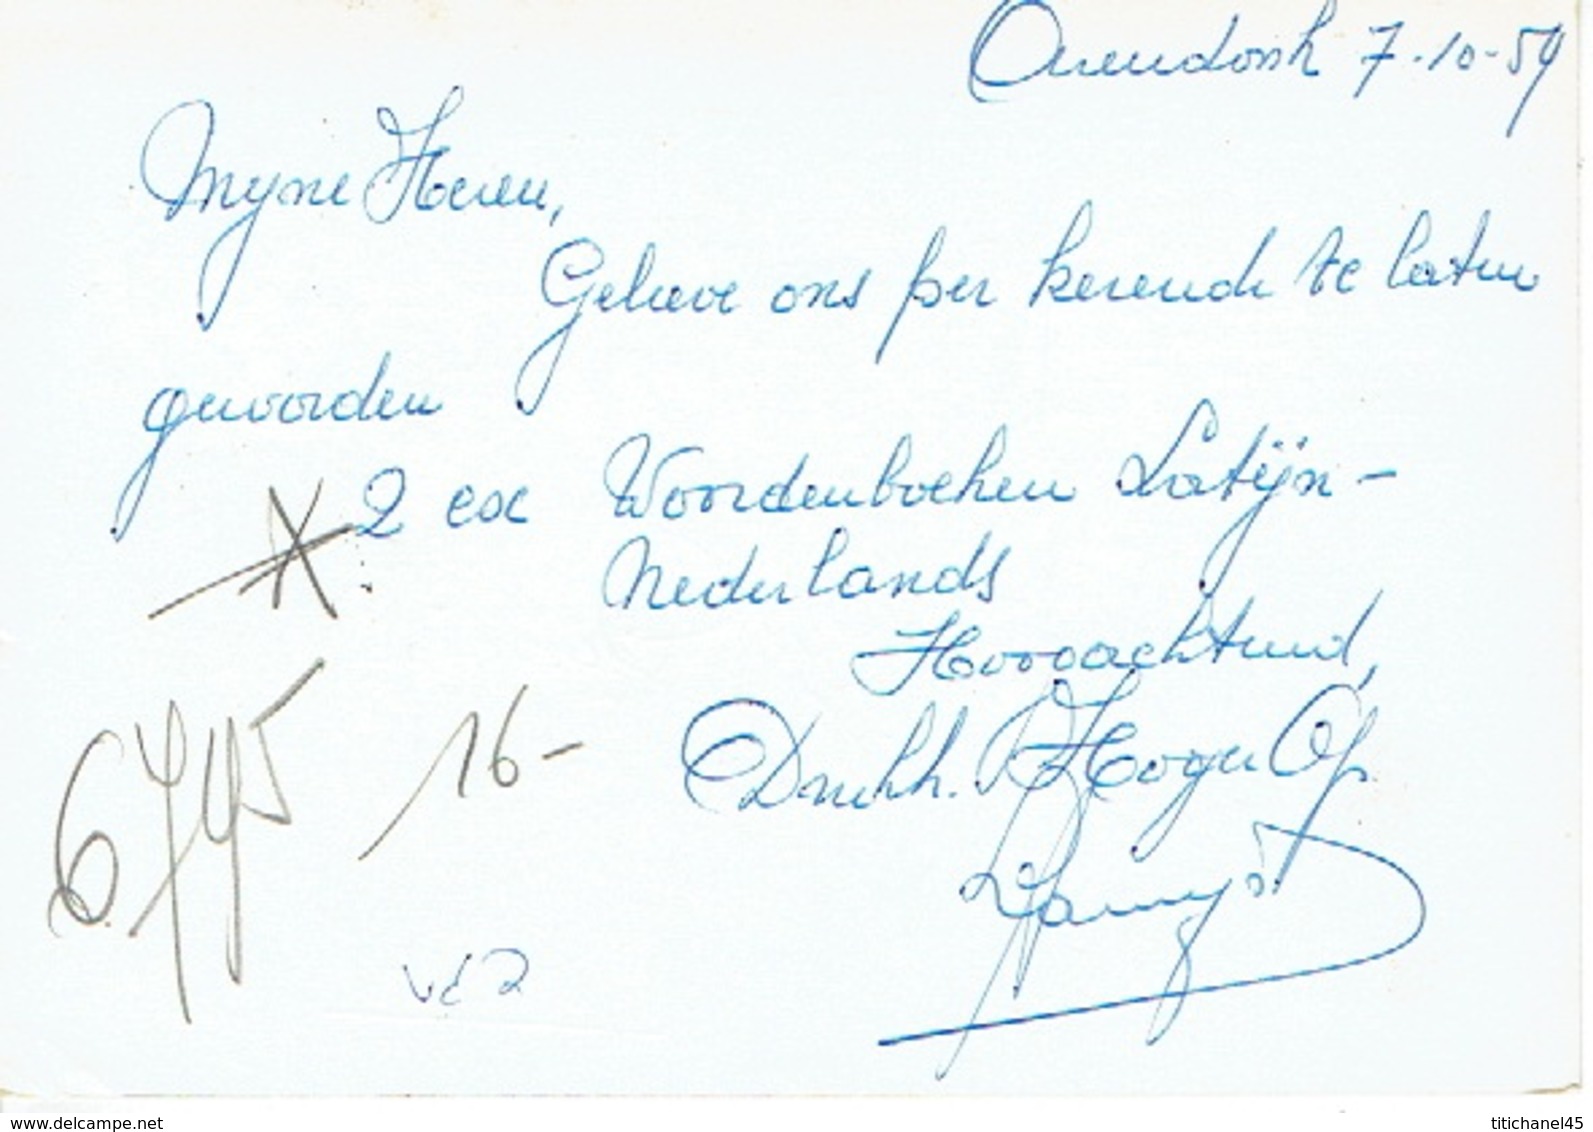 Ouendonk 7-10-59
Myne Heren,
Gelieve ons per kerende te laten
geworden
2 ex Woordenboeken Latijn -
Nederlands
Hoogachtend,
Drukk. Hoger Op
6745 16-
vd 2
www.delcampe.net
titichanel45